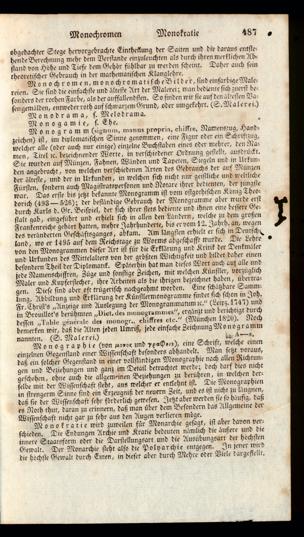 Monochromen Monokratie 487
obgedachter Stege hervorgebrachte Eintheilung der Saiten und die daraus entste-
hende Berechnung mehr dem Verstande einzuleuchten als durch ihren merklichen Ab-
stand von Höhe und Tiefe dem Gehör fühlbar zu werden scheint. Daher auch sein
theoretischer Gebrauch in der mathematischen Klanglehre.
Monochromen, monochromatische Bilder, sind einfarbige Male-
reien. Sie sind die einfachste und älteste Art der Malerei; man bediente sich zuerst be-
sonders der rothen Farbe, als der auffallendsten. So finden wir sie auf den ältesten Va-
sengemälden, entweder roth auf schwarzem Grund, oder umgekehrt. (S. Malerei.)
Monodrama, s. Melodrama.
Monogamie, s. Ehe.
Monogramm (signum, manus propria, chiffre, Namenszug, Hand-
zeichen) ist, im diplomatischen Sinne genommen, eine Figur oder ein Schriftzug,
welcher alle (oder auch nur einige) einzelne Buchstaben eines oder mehrer, den Na-
men, Titel ic. bezeichnender Worte, in verschiedener Ordnung gestellt, ausdrückt.
Sie wurden auf Münzen, Fahnen, Wänden und Tapeten, Siegeln und in Urkun-
den angebracht, von welchen verschiedenen Arten der Gebrauch der auf Münzen
der älteste, und der in Urkunden, in welchen sich nicht nur geistliche und weltliche
Fürsten, sondern auch Magistratspersonen und Notare ihrer bedienten, der jüngste
war. Das erste bis jetzt bekannte Monogramm ist vom ostgothischen König Theo-
dorich (493—526); der beständige Gebrauch der Monogramme aber wurde erst
durch Karls d. Gr. Beispiel, der sich ihrer stets bediente und ihnen eine bessere Ge-
stalt gab, eingeführt und erhielt sich in allen den Ländern, welche zu dem großen
Frankenreiche gehört hatten, mehre Jahrhunderte, bis er vom 12. Jahrh. an, wegen
des veränderten Geschäftsganges, abkam. Am längsten erhielt er sich in Deutsch-
land, wo er 1495 auf dem Reichstage zu Worms abgeschafft wurde. Die Lehre
von den Monogrammen dieser Art ist für die Erklärung und Kritik der Denkmäler
und Urkunden des Mittelalters von der größten Wichtigkeit und bildet daher einen
besondern Theil der Diplomatie. Späterhin hat man dieses Wort auch auf alle und
jede Namensschriften, Säge und sonstige Zeichen, mit welchen Künstler, vorzüglich
Maler und Kupferstecher, ihre Arbeiten als die ihrigen bezeichnet haben, übertra-
gen. Diese sind aber oft trügerisch nachgeahmt worden. Eine schätzbare Samm-
lung, Abbildung und Erklärung der Künstlermonogramme findet sich schon in Joh.
Fr. Christ's „Anzeige und Auslegung der Monogrammatum ic." (Leipz. 1747) und
in Brouillot's berühmtem „Dict. des monogrammes", ergänzt und berichtigt durch
dessen „Table générale des monogr., chiffres etc." (München 1820). Noch
bemerken wir, daß die Alten jeden Umriß, jede einfache Zeichnung Monogramm
nannten. (S. Malerei.)
Monographie (von μονος und γραφειν), eine Schrift, welche einen
einzelnen Gegenstand einer Wissenschaft besonders abhandelt. Man setzt voraus,
daß ein solcher Gegenstand in einer vollständigen Monographie nach allen Richtun-
gen und Beziehungen und ganz im Detail betrachtet werde; doch darf dies nicht
geschehen, ohne auch die allgemeinen Beziehungen zu berühren, in welchen der-
selbe mit der Wissenschaft steht, aus welcher er entlehnt ist. Die Monographien
in strengerm Sinne sind ein Erzeugniß der neuern Zeit, und es ist nicht zu läugnen,
daß sie der Wissenschaft sehr förderlich gewesen. Jetzt aber werden sie so häufig, daß
es Noth thut, daran zu erinnern, daß man über dem Besondern das Allgemeine der
Wissenschaft nicht gar zu sehr aus den Augen verlieren möge.
Monokratie wird zuweilen für Monarchie gesagt, ist aber davon ver-
schieden. Die Endungen Archie und Kratie bedeuten nämlich die äußere und die
innere Staatsform oder die Darstellungsart und die Ausübungsart der höchsten
Gewalt. Der Monarchie steht also die Polyarchie entgegen. In jener wird
die höchste Gewalt durch Einen, in dieser aber durch Mehre oder Viele dargestellt,